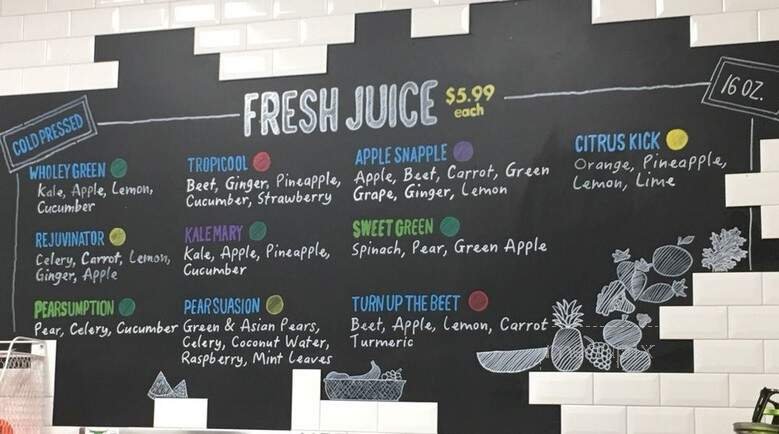 FRESH JUICE $5.99
each
16 OZ.
COLD PRESSED
WHOLEY GREEN
Kale, Apple, Lemon,
Cucumber
REJUVINATOR
Celery, Carrot, Lemon,
Ginger, Apple
PEARSUMPTION
Pear, Celery, Cucumber
TROPICOOL
Beet, Ginger, Pineapple,
Cucumber, Strawberry
KALE MARY
Kale, Apple, Pineapple,
Cucumber
PEARSUASION
Green & Asian Pears,
Celery, Coconut Water,
Raspberry, Mint Leaves
APPLE SNAPPLE
Apple, Beet, Carrot, Green
Grape, Ginger, Lemon
SWEET GREEN
Spinach, Pear, Green Apple
TURN UP THE BEET
Beet, Apple, Lemon, Carrot
Turmeric
CITRUS KICK
Orange, Pineapple,
Lemon, Lime